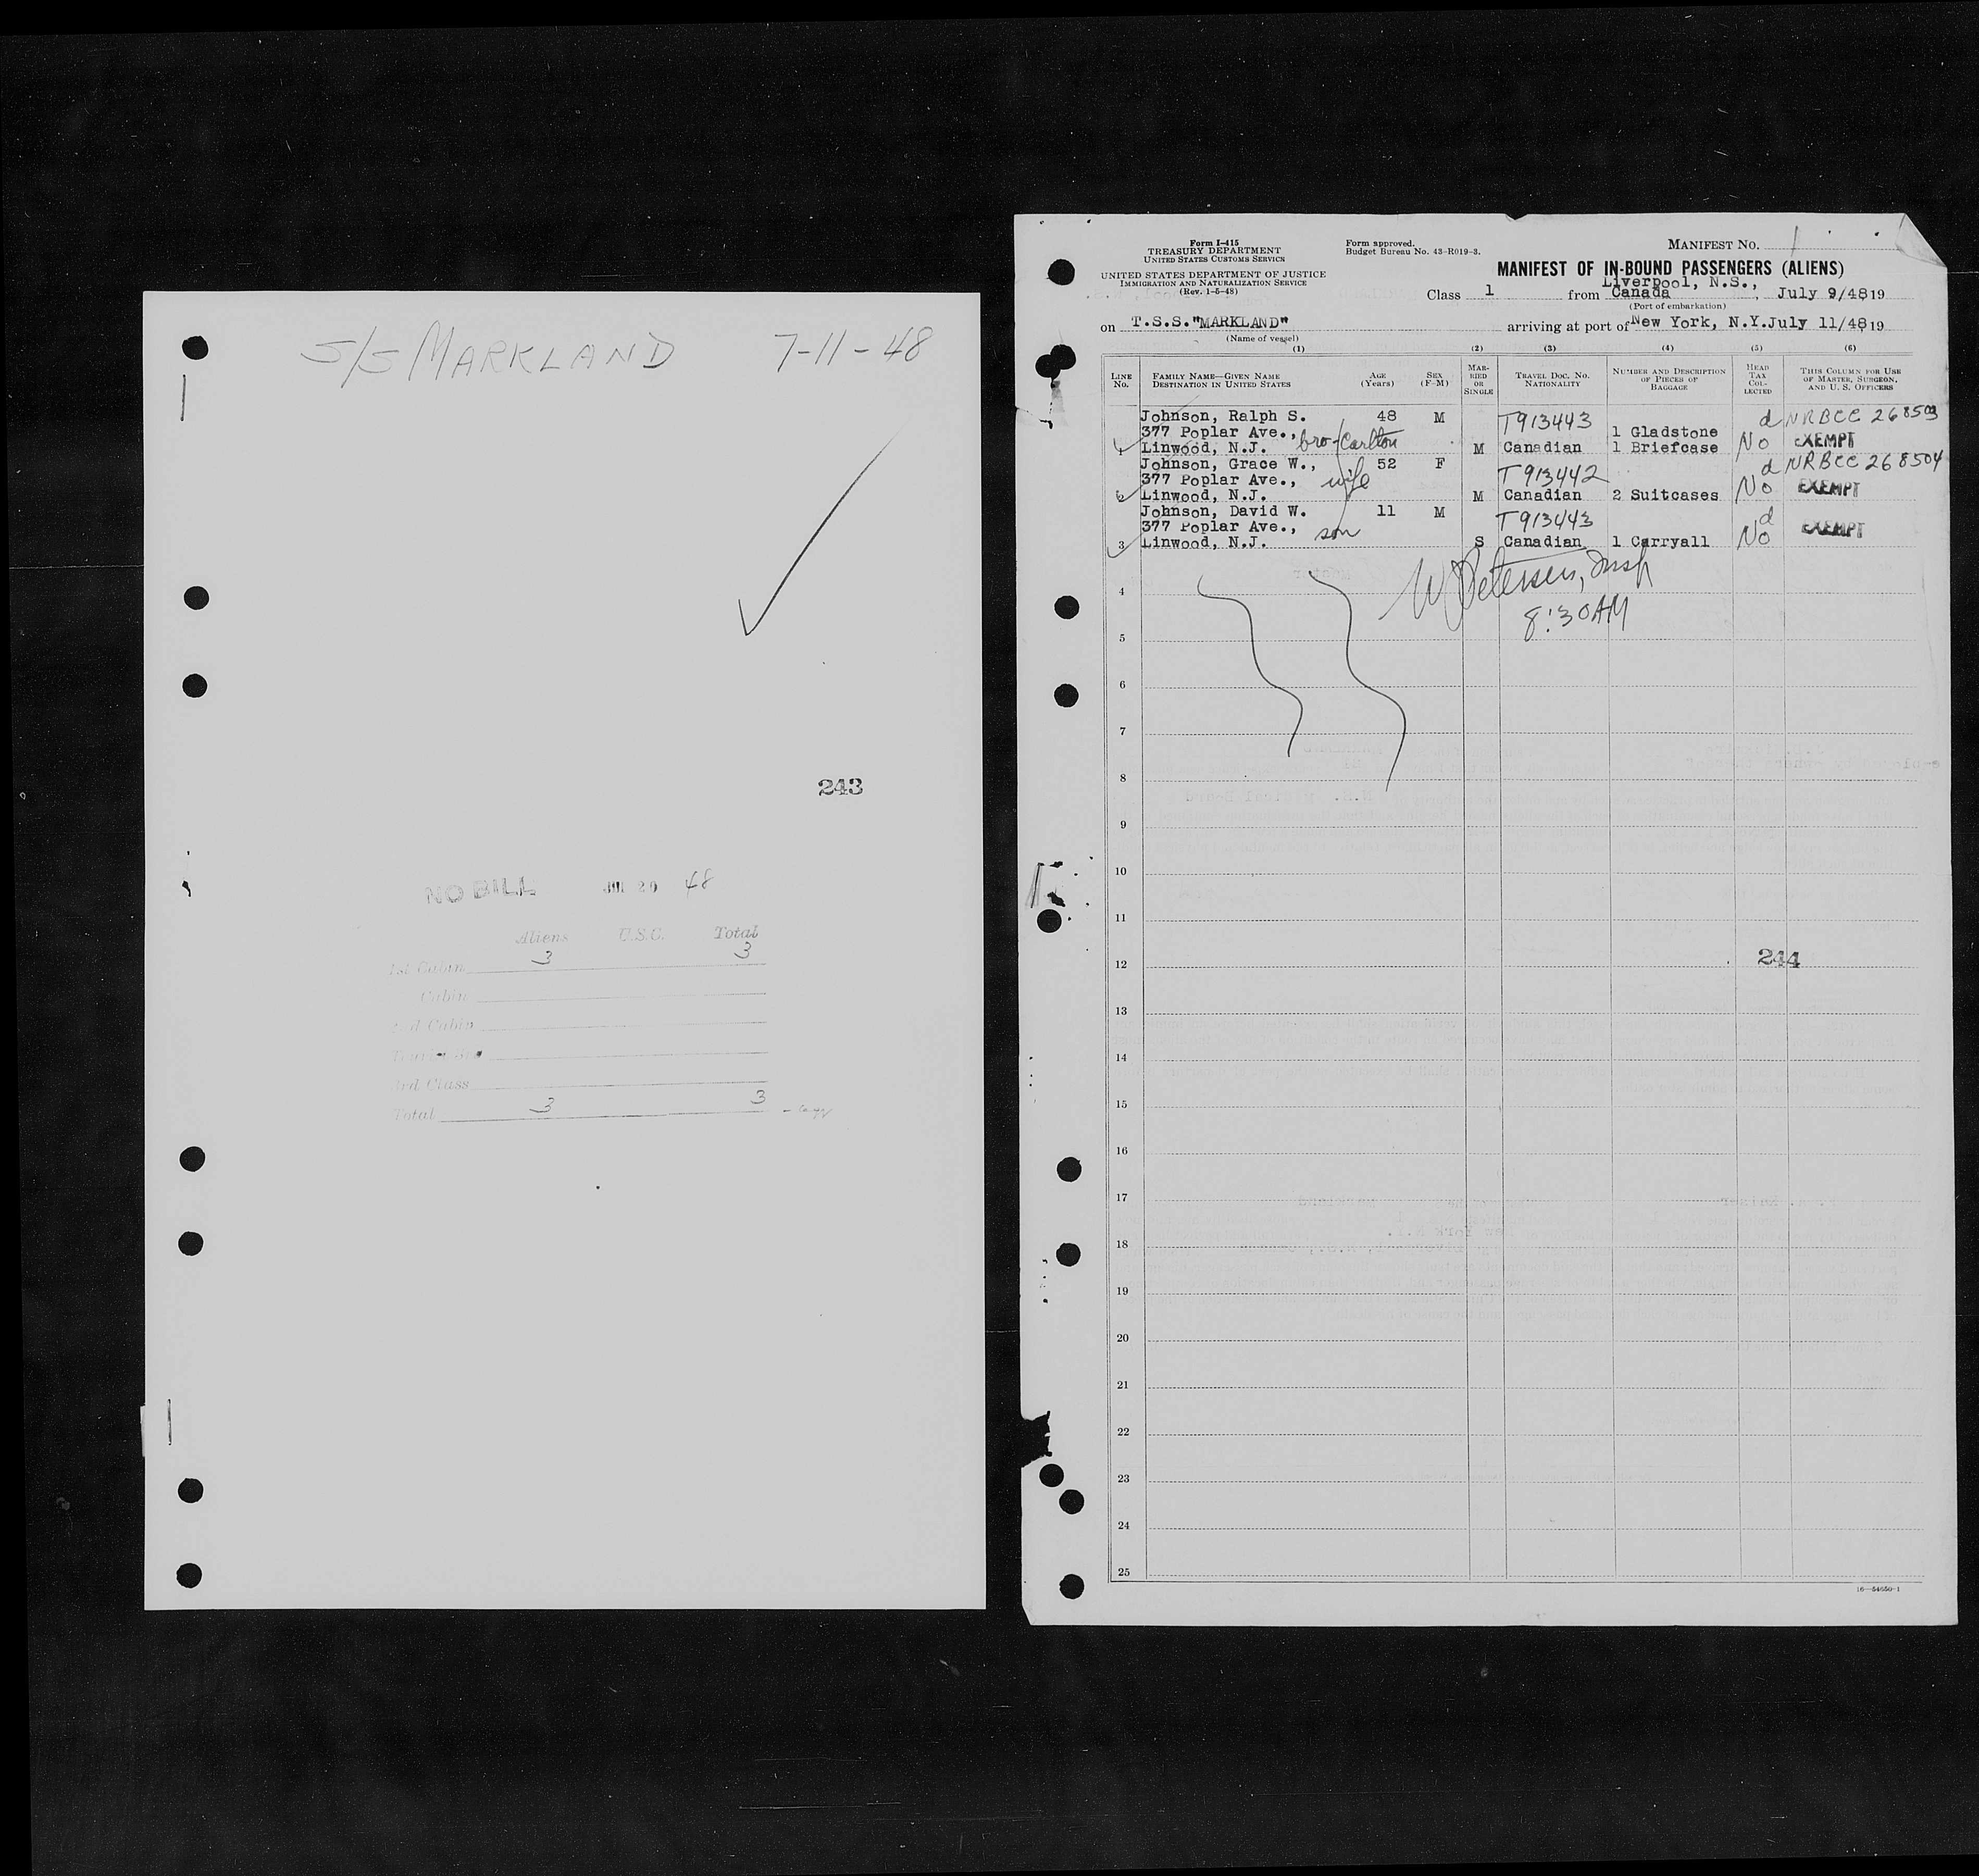 S/S MARKLAND 7-11-48
243
NO BILL JUL 20 48
Aliens U.S.C. Total
1st Cabin 3 3
Cabin
2nd Cabin
3rd Class
Total 3 3
Form I-415
TREASURY DEPARTMENT
UNITED STATES CUSTOMS SERVICE
UNITED STATES DEPARTMENT OF JUSTICE
IMMIGRATION AND NATURALIZATION SERVICE
(Rev. 1-5-48)
Form approved.
Budget Bureau No. 43-R019-3.
MANIFEST NO. 1
MANIFEST OF IN-BOUND PASSENGERS (ALIENS)
Liverpool, N.S.,
Class 1 from Canada, July 9/48 19
(Port of embarkation)
on T.S.S."MARKLAND" arriving at port of New York, N.Y. July 11/48 19
(Name of vessel)
(1) (2) (3) (4) (5) (6)
LINE No. FAMILY NAME—GIVEN NAME DESTINATION IN UNITED STATES AGE (Years) SEX (F-M) MARRIED OR SINGLE TRAVEL DOC. NO. NATIONALITY NUMBER AND DESCRIPTION OF PIECES OF BAGGAGE HEAD TAX COLLECTED THIS COLUMN FOR USE OF MASTER, SURGEON, AND U. S. OFFICERS
Johnson, Ralph S. 48 M T913443 d NRBCC 268503
377 Poplar Ave., bro-Carlton 1 Gladstone
1 Linwood, N.J. M Canadian 1 Briefcase No EXEMPT
Johnson, Grace W., 52 F T913442 d NRBCC 268504
377 Poplar Ave., wife
2 Linwood, N.J. M Canadian 2 Suitcases No EXEMPT
Johnson, David W. 11 M T913443 d
377 Poplar Ave., son
3 Linwood, N.J. S Canadian 1 Carryall No EXEMPT
W Petersen, Insp
8:30AM
4
5
6
7
8
9
10
11
12
244
13
14
15
16
17
18
19
20
21
22
23
24
25
16—54050-1